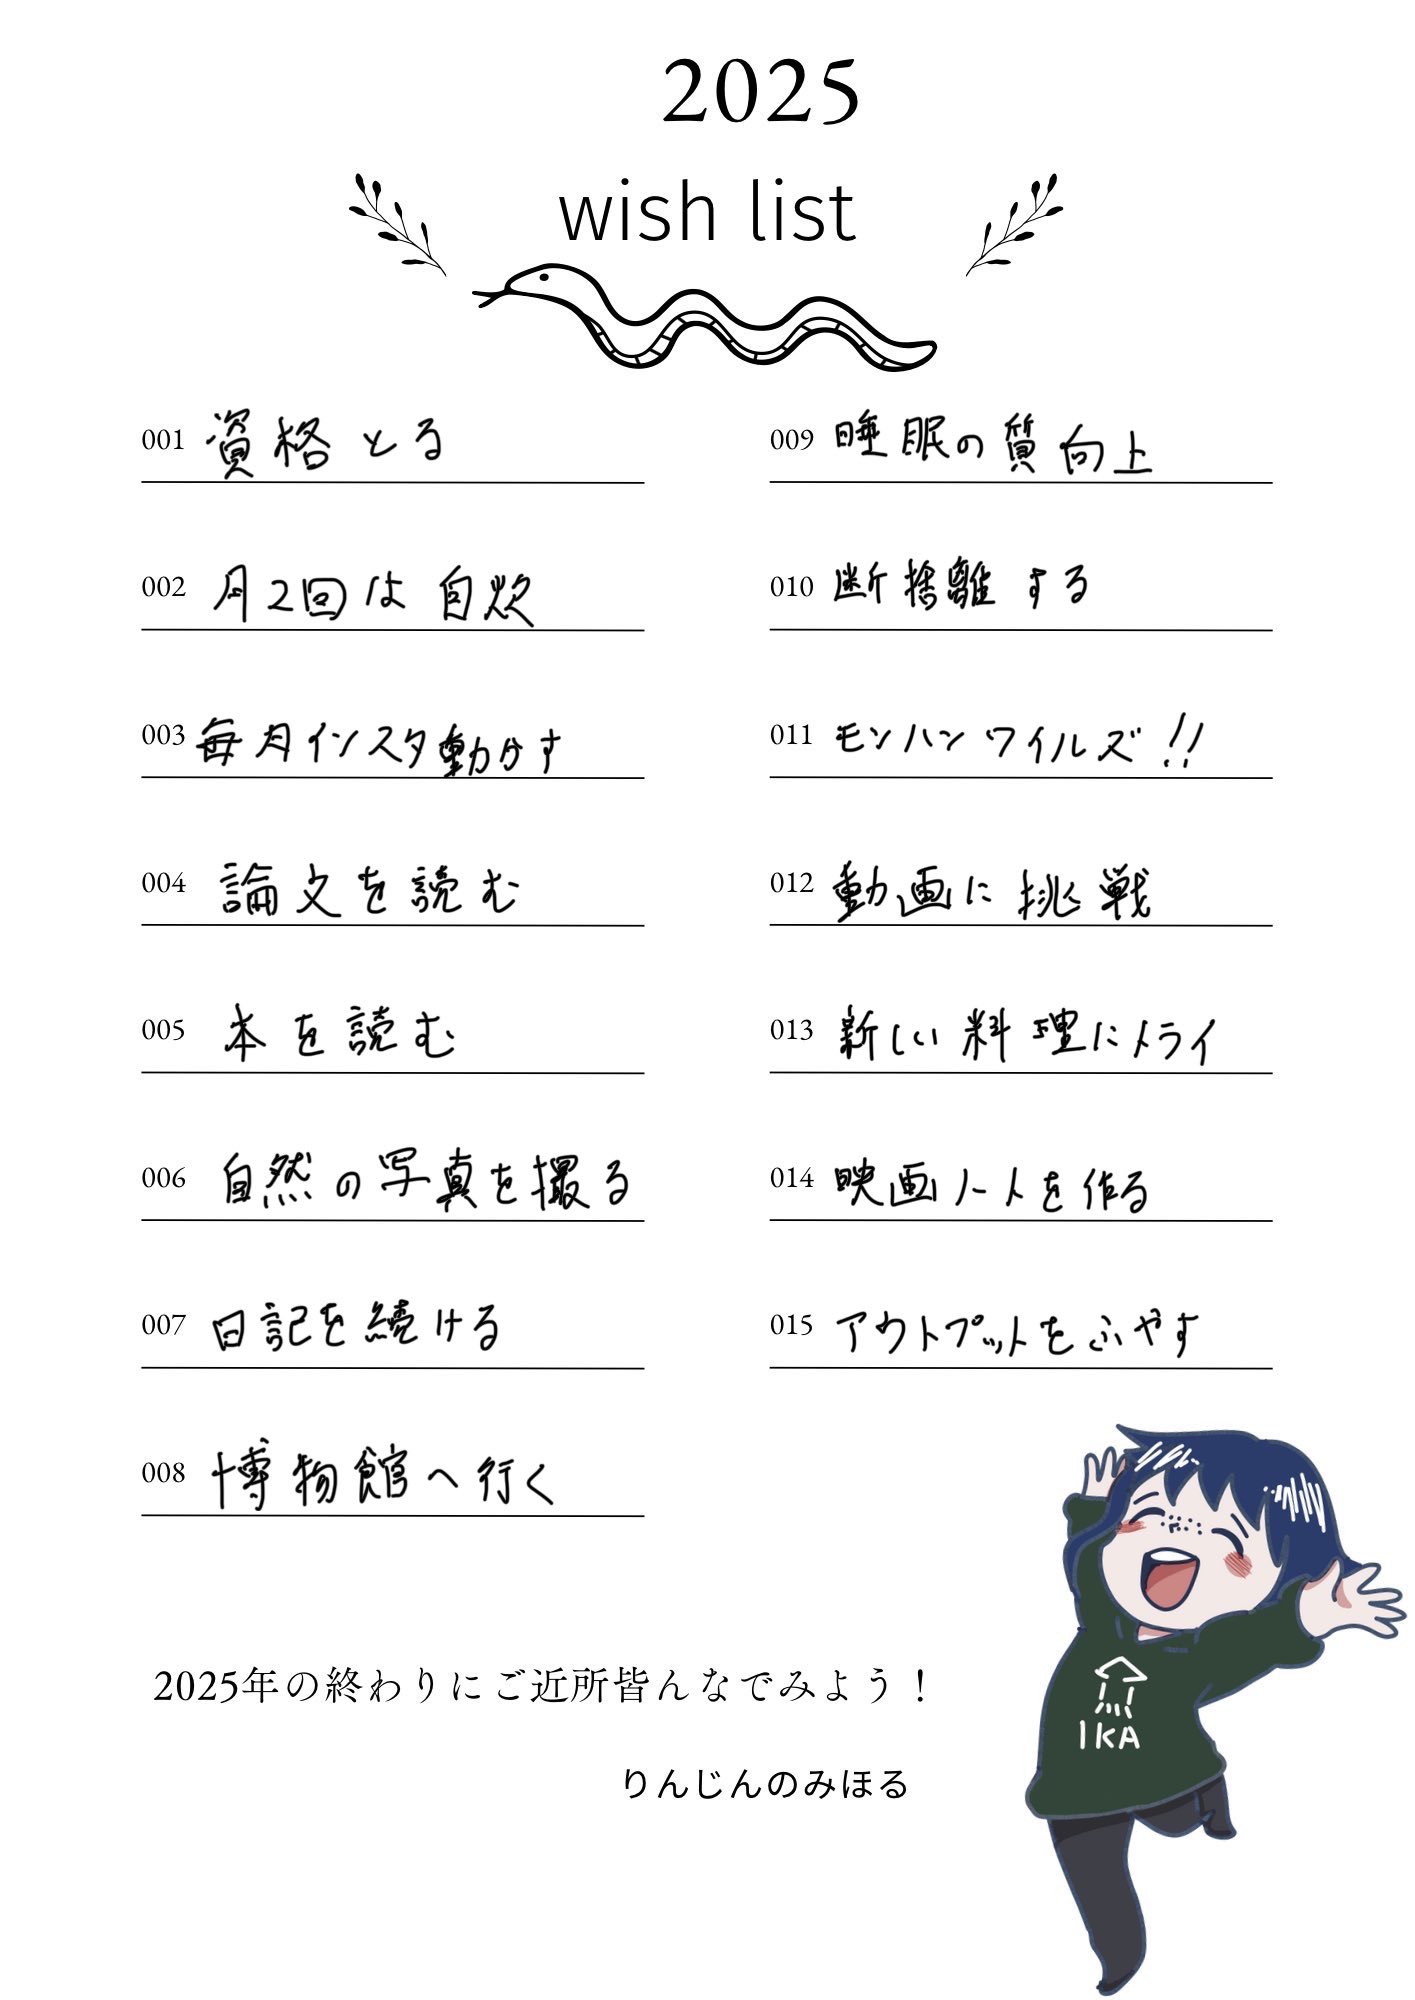 2025
wish list
001 資格とる
002 月2回は自炊
003 毎月インスタ動かす
004 論文を読む
005 本を読む
006 自然の写真を撮る
007 日記を続ける
008 博物館へ行く
009 睡眠の質向上
010 断捨離する
011 モンハンワイルズ!!
012 動画に挑戦
013 新しい料理にトライ
014 映画ノートを作る
015 アウトプットをふやす
IKA
2025年の終わりにご近所皆んなでみよう！
りんじんのみほる